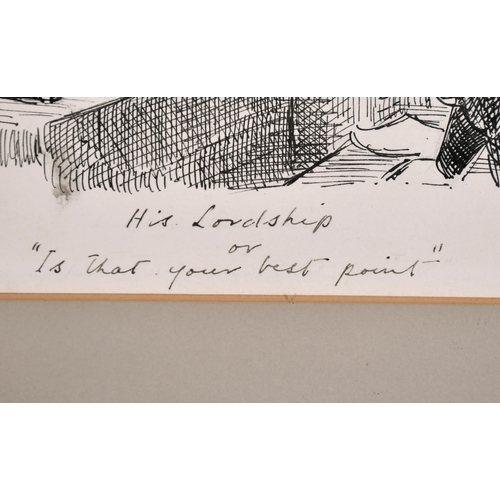 His. Lordship
or
"Is that your best point"